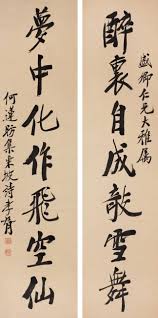 盛卿仁兄大雅属
醉裏自成敲雪舞
夢中化作飛空仙
何蓮舫集東坡詩孝胥